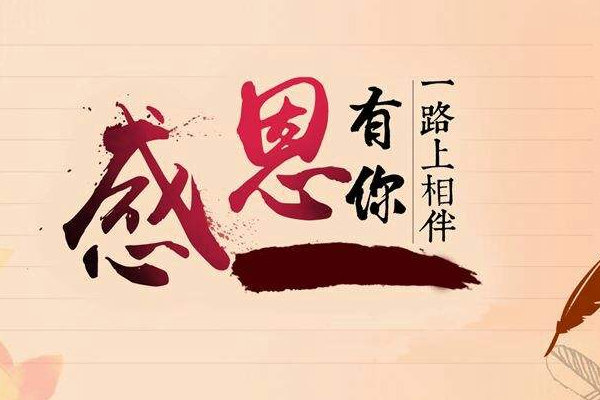 感恩
有你
一路上相伴